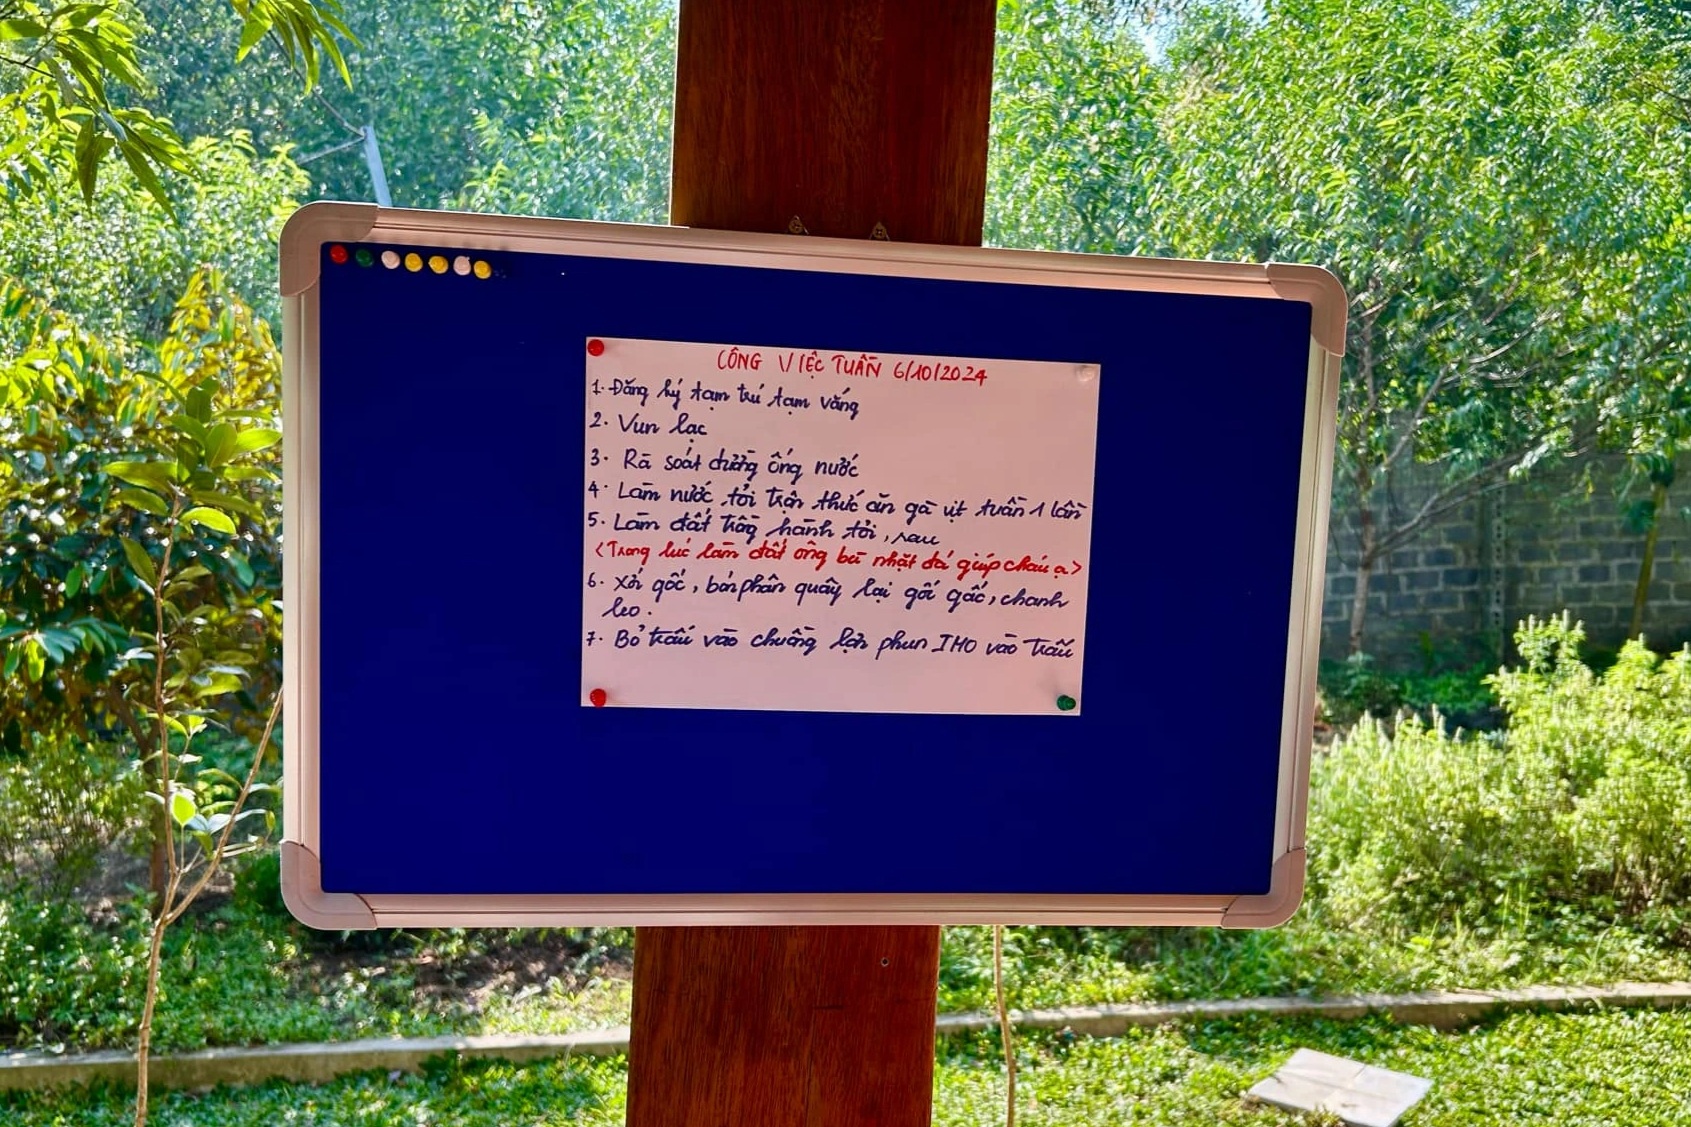 CÔNG VIỆC TUẦN 6/10/2024
1. Đăng ký tạm trú tạm vắng
2. Vun lạc
3. Rà soát đường ống nước
4. Làm nước tỏi trộn thức ăn gà vịt tuần 1 lần
5. Làm đất trồng hành tỏi, rau
<Trong lúc làm đất ông bà nhặt đá giúp cháu ạ>
6. Xới gốc, bón phân quây lại gốc gấc, chanh
leo.
7. Bỏ trấu vào chuồng lợn phun IMO vào trấu